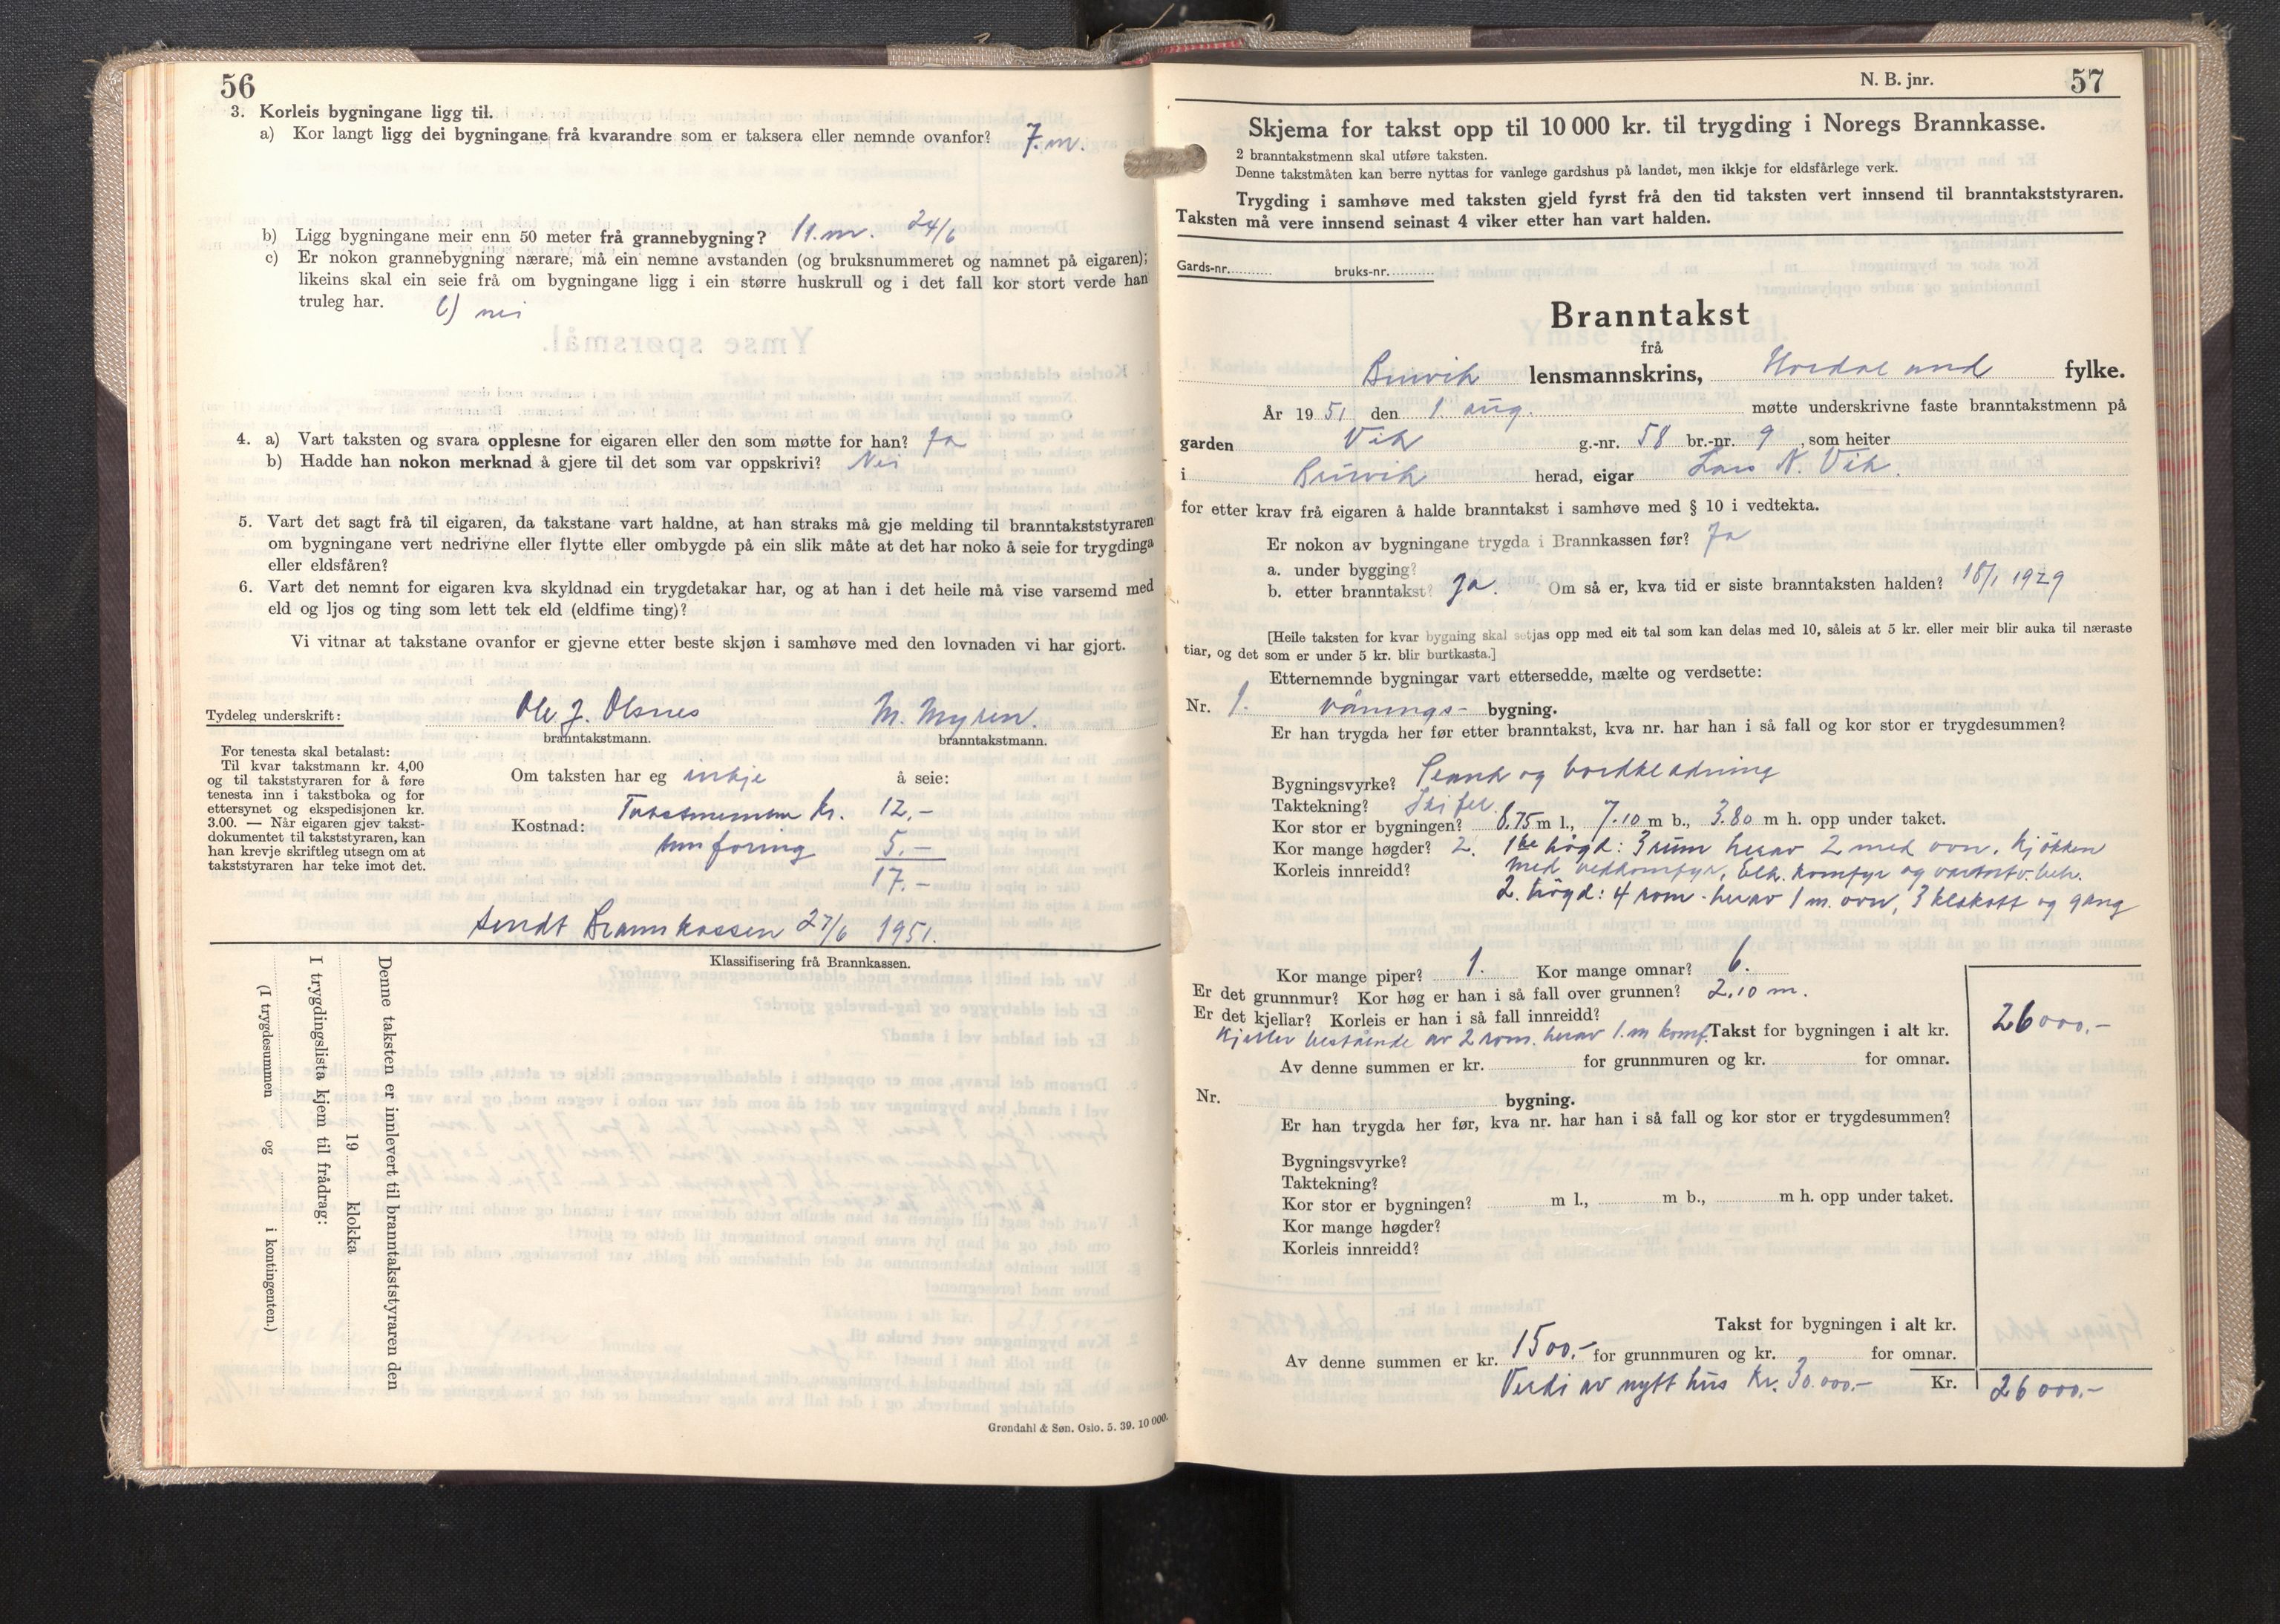 56
3. Korleis bygningane ligg til.
a) Kor langt ligg dei bygningane frå kvarandre som er taksera eller nemnde ovanfor? 7. m.
b) Ligg bygningane meir enn 50 meter frå grannebygning? 11. m. 24/6
c) Er nokon grannebygning nærare, må ein nemne avstanden (og bruksnummeret og namnet på eigaren);
likeins skal ein seie frå om bygningane ligg i ein større huskrull og i det fall kor stort verde han
truleg har. c) nei
4. a) Vart taksten og svara opplesne for eigaren eller den som møtte for han? Ja
b) Hadde han nokon merknad å gjere til det som var oppskrivi? Nei
5. Vart det sagt frå til eigaren, da takstane vart haldne, at han straks må gje melding til branntakststyraren
om bygningane vert nedrivne eller flytte eller ombygde på ein slik måte at det har noko å seie for trygdinga
eller eldsfåren?
6. Vart det nemnt for eigaren kva skyldnad ein trygdetakar har, og at han i det heile må vise varsemd med
eld og ljos og ting som lett tek eld (eldfime ting)?
Vi vitnar at takstane ovanfor er gjevne etter beste skjøn i samhøve med den lovnaden vi har gjort.
Tydeleg underskrift: Ole J. Olsnes M. Myren.
branntakstmann. branntakstmann.
For tenesta skal betalast:
Til kvar takstmann kr. 4,00
og til takststyraren for å føre
tenesta inn i takstboka og for
ettersynet og ekspedisjonen kr.
3.00. — Når eigaren gjev takst-
dokumentet til takststyraren, kan
han krevje skriftleg utsegn om at
takststyraren har teke imot det.
Om taksten har eg inkje å seie:
Kostnad: Takstmennene kr. 12,-
Innføring 5.-
17.-
Sendt Brannkassen 27/6 1951.
Klassifisering frå Brannkassen.
Denne taksten er innlevert til branntakststyraren den
19 klokka
I trygdingslista kjem til frådrag:
(I trygdesummen og i kontingenten.)
Grøndahl & Søn. Oslo. 5. 39. 10 000.
N. B. jnr. 57
Skjema for takst opp til 10 000 kr. til trygding i Noregs Brannkasse.
2 branntakstmenn skal utføre taksten.
Denne takstmåten kan berre nyttas for vanlege gardshus på landet, men ikkje for eldsfårlege verk.
Trygding i samhøve med taksten gjeld fyrst frå den tid taksten vert innsend til branntakststyraren.
Taksten må vere innsend seinast 4 viker etter han vart halden.
Gards-nr. bruks-nr.
Branntakst
frå
Bruvik lensmannskrins, Hordaland fylke.
År 1951 den 1. aug. møtte underskrivne faste branntakstmenn på
garden Vik g.-nr. 58 br.-nr. 9, som heiter
i Bruvik herad, eigar Lars N. Vik.
for etter krav frå eigaren å halde branntakst i samhøve med § 10 i vedtekta.
Er nokon av bygningane trygda i Brannkassen før? Ja
a. under bygging?
b. etter branntakst? Ja. Om så er, kva tid er siste branntaksten halden? 18/1 1929
[Heile taksten for kvar bygning skal setjas opp med eit tal som kan delas med 10, såleis at 5 kr. eller meir blir auka til næraste
tiar, og det som er under 5 kr. blir burtkasta.]
Etternemnde bygningar vart ettersedde, mælte og verdsette:
Nr. 1. Vånings- bygning.
Er han trygda her før etter branntakst, kva nr. har han i så fall og kor stor er trygdesummen?
Bygningsvyrke? Plank og bordkledning
Taktekning? Skifer.
Kor stor er bygningen? 8,75 m l., 7.10 m b., 3.80 m h. opp under taket.
Kor mange høgder? 2. 1ste högd: 3 rum herav 2 med ovn. Kjökken
Korleis innreidd? med vedkomfyr, elk. komfyr og
2. högd: 4 rom - herav 1 m. ovn, 3 kleskott og gang
Kor mange piper? 1. Kor mange omnar? 6.
Er det grunnmur? Kor høg er han i så fall over grunnen? 2,10 m.
Er det kjellar? Korleis er han i så fall innreidd?
Kjeller bestående av 2 rom. herav 1. m komf. Takst for bygningen i alt kr. 26000.-
Av denne summen er kr. for grunnmuren og kr. for omnar.
Nr. bygning.
Er han trygda her før, kva nr. har han i så fall og kor stor er trygdesummen?
Bygningsvyrke?
Taktekning?
Kor stor er bygningen? m l., m b., m h. opp under taket.
Kor mange høgder?
Korleis innreidd?
Takst for bygningen i alt kr.
Av denne summen er kr. 1500.- for grunnmuren og kr. for omnar.
Verdi av nytt hus Kr. 30.000.- Kr. 26000.-